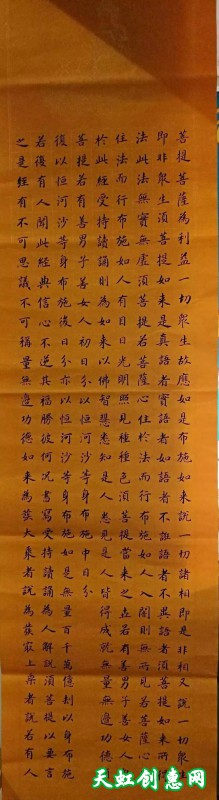 菩提菩薩為利益一切眾生故應如是布施如來說一切諸相即是非相又說一切眾生
即非眾生須菩提如來是真語者實語者如語者不誑語者不異語者須菩提如來所得
法此法無實無虛須菩提若菩薩心住於法而行布施如人入闇則無所見若菩薩心不
住法而行布施如人有目日光明照見種種色須菩提當來之世若有善男子善女人能
於此經受持讀誦則為如來以佛智慧悉知是人悉見是人皆得成就無量無邊功德
菩提若有善男子善女人初日分以恒河沙等身布施中日分
復以恒河沙等身布施後日分亦以恒河沙等身布施如是無量百千萬億劫以身布施
若復有人聞此經典信心不逆其福勝彼何況書寫受持讀誦為人解說須菩提以要言
之是經有不可思議不可稱量無邊功德如來為發大乘者說為發最上乘者說若有人
天虹创惠网